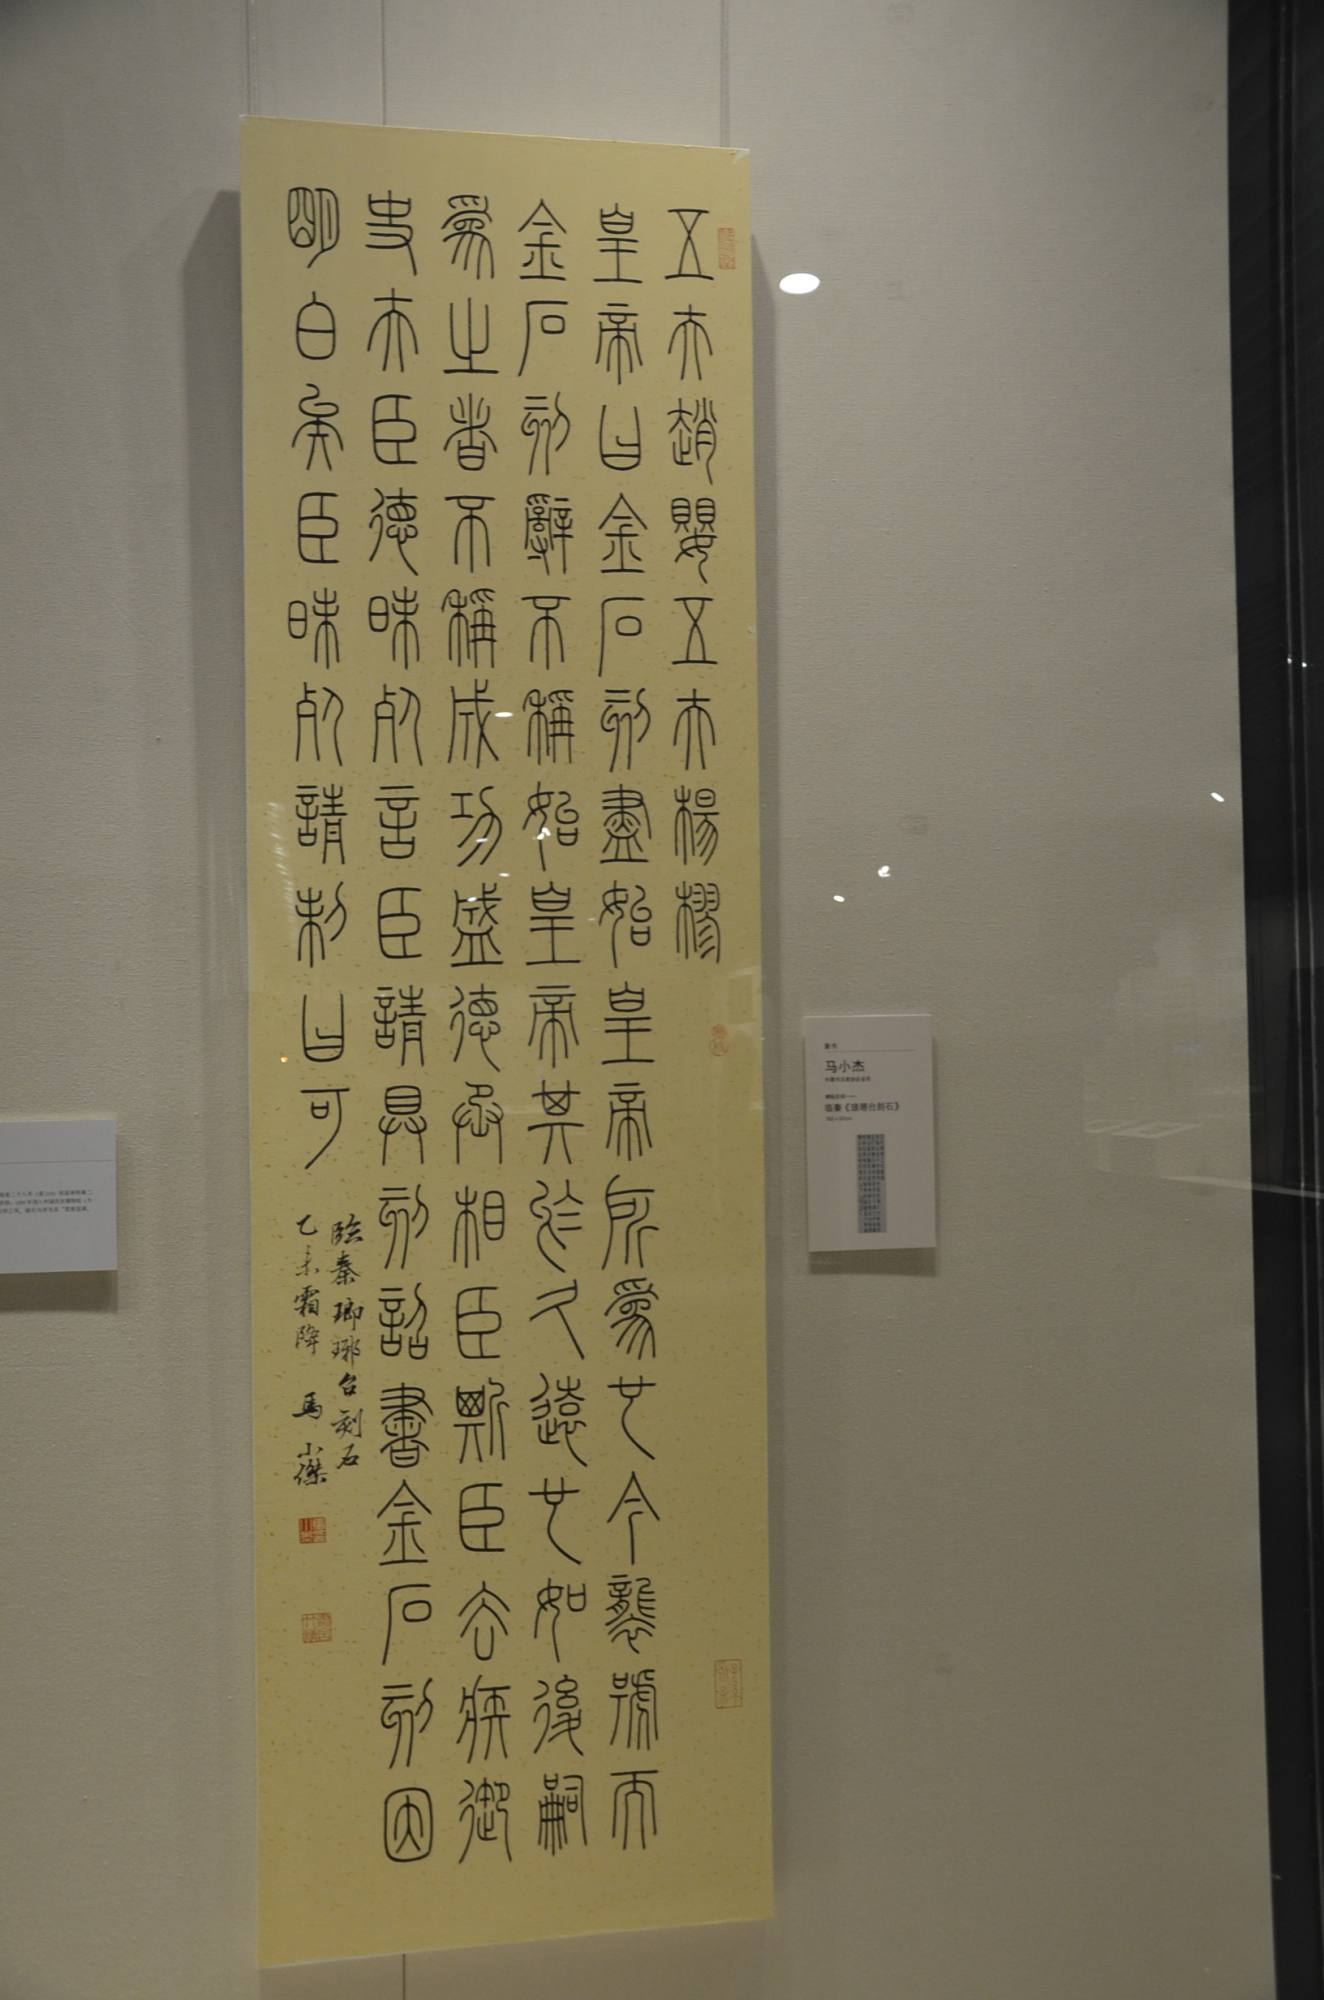 五夫趙嬰五夫楊樛
皇帝曰金石刻盡始皇帝所爲也今襲號而
金石刻辭不稱始皇帝其於久遠也如後嗣
爲之者不稱成功盛德丞相臣斯臣去疾御
史夫臣德昧死言臣請具刻詔書金石刻因
明白矣臣昧死請制曰可
臨秦瑯琊台刻石
乙未霜降 馬小傑
篆书
马小杰
中国书法家协会会员
临秦《琅琊台刻石》